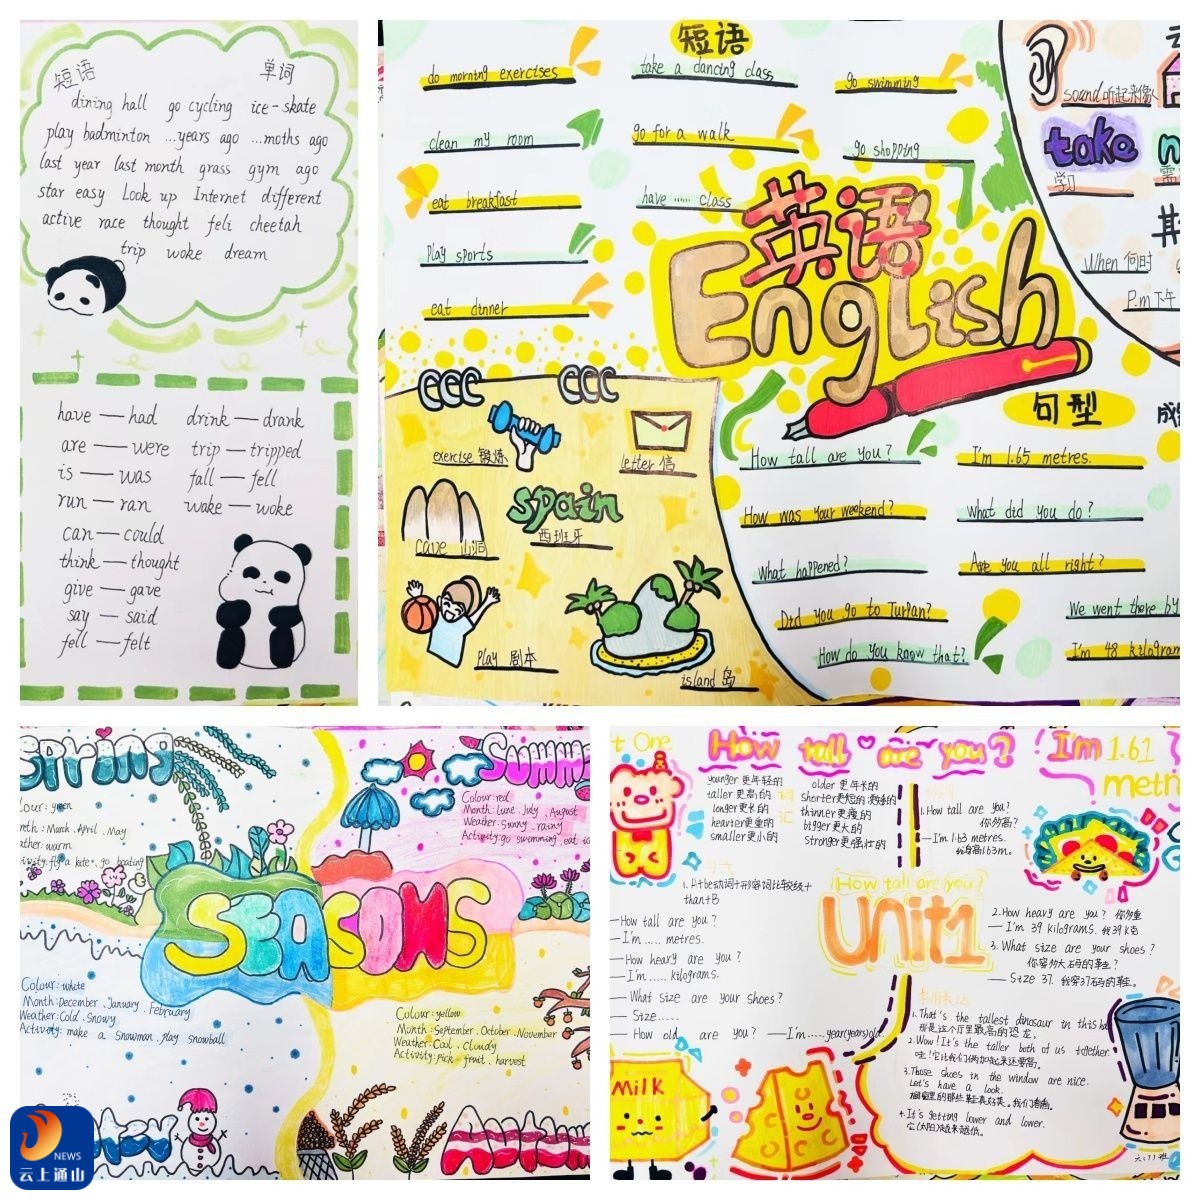 短语 单词
dining hall go cycling ice-skate
play badminton ...years ago ...moths ago
last year last month grass gym ago
star easy Look up Internet different
active race thought feli cheetah
trip woke dream
have — had drink — drank
are — were trip — tripped
is — was fall — fell
run — ran wake — woke
can — could
think — thought
give — gave
say — said
fell — felt
短语
do morning exercises
take a dancing class
go swimming
clean my room
go for a walk
go shopping
eat breakfast
have ...... class
Play sports
eat dinner
英语
English
sound 听起来像
take
学习
When 何时
P.m 下午
exercise 锻炼
letter 信
spain
西班牙
cave 山洞
play 剧本
island 岛
句型
How tall are you?
I'm 1.65 metres.
How was your weekend?
What did you do?
What happened?
Are you all right?
Did you go to Turpan?
We went there by
How do you know that?
I'm 48 kilogram
Spring
Colour: green
Month: March. April. May
Weather: warm
Activity: fly a kite. go boating
Summ
Colour: red
Month: June. July. August
Weather: sunny. rainy
Activity: go swimming. eat ic
SEASONS
Colour: white
Month: December. January. February
Weather: Cold. Snowy
Activity: make a snowman. play snowball
Colour: yellow
Month: September. October. November
Weather: Cool. cloudy
Activity: pick fruit. harvest
Autumn
t One
How tall are you? I'm 1.61
metr
younger 更年轻的
taller 更高的
longer 更长的
hearier 更重的
smaller 更小的
older 更年长的
shorter 更短的,更矮的
thinner 更瘦的
bigger 更大的
stronger 更强壮的
词
汇
1. A+be动词+形容词比较级+
than+B
— How tall are you?
— I'm ..... metres.
— How heary are you?
— I'm ...... kilograms.
— What size are your shoes?
— Size .....
— How old are you? — I'm ..... year(years)old.
How tall are you?
Unit1
1. How tall are you?
你多高?
— I'm 1.63 metres.
我身高1.63m。
2. How heavy are you? 你多重
— I'm 39 kilograms. 我39k克
3. What size are your shoes?
你穿多大码的鞋?
— Size 37. 我穿37码的鞋。
常用表达
1. That's the tallest dinosaur in this ha
那是这个厅里最高的恐龙。
2. Wow! It's the taller both of us together.
哇!它比我们俩加起来还要高。
3. Those shoes in the window are nice.
Let's have a look.
橱窗里的那些鞋真好美。我们看看。
4. It's getting lower and lower.
它(太阳)越来越低。
MILK
六(1)班
NEWS
云上通山